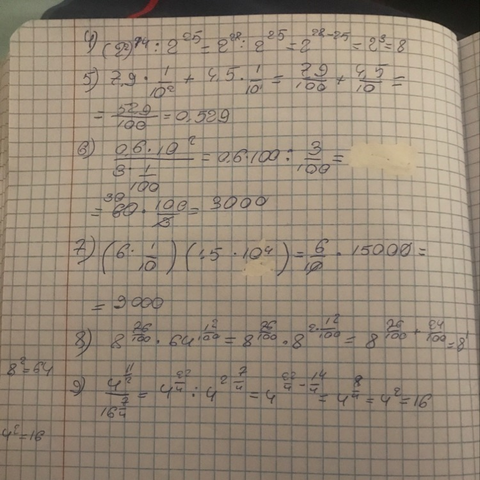 4) (2²)¹⁴ : 2²⁵ = 2²⁸ : 2²⁵ = 2²⁸⁻²⁵ = 2³ = 8
5) 7,9 · 1/10² + 4.5 · 1/10 = 7,9/100 + 4,5/10 =
= 52,9/100 = 0,529
6) 0,6·10² / 3·1/100 = 0,6·100 : 3/100 =
= 60 · 100/3 = 3000
7) (6 · 1/10) (1,5 · 10⁴) = 6/10 · 15000 =
= 9000
8) 8^26/100 · 64^12/100 = 8^26/100 · 8^2·12/100 = 8^26/100 + 24/100 = 8
8² = 64
9) 4^11/2 / 16^7/4 = 4^22/4 : 4^2·7/4 = 4^22/4 - 14/4 = 4^8/4 = 4² = 16
4² = 16